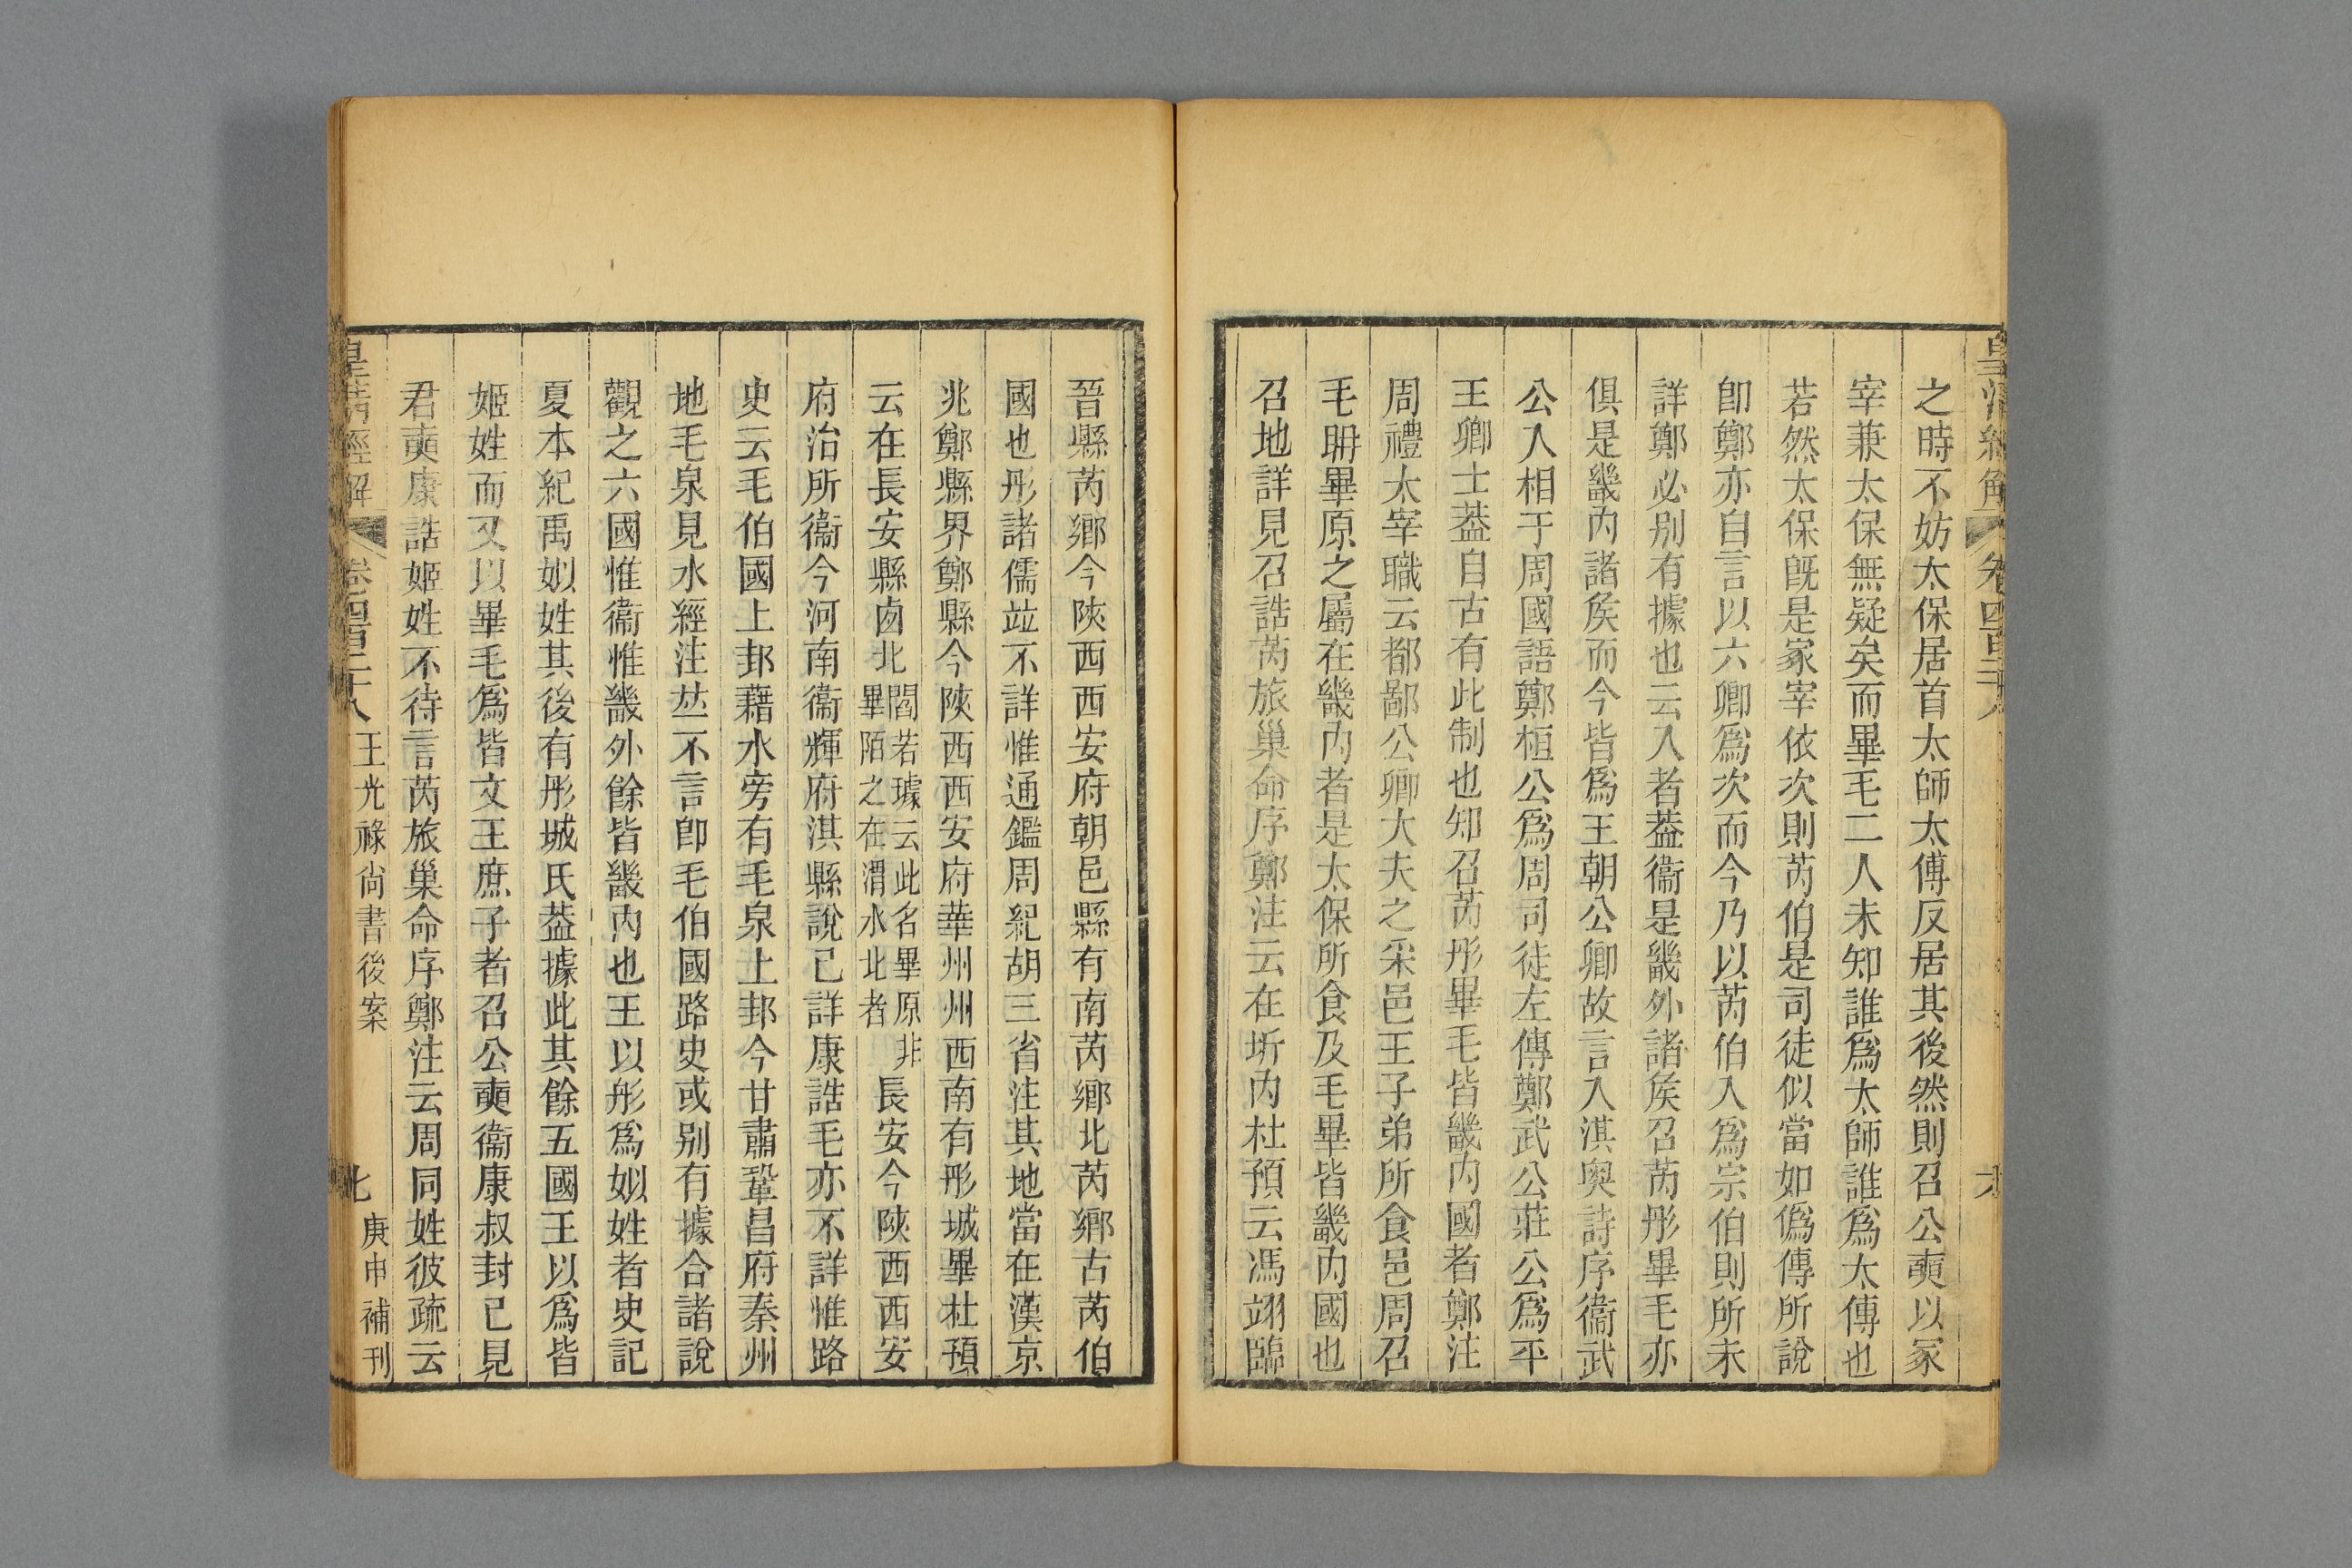 之時不妨太保居首太師太傅反居其後然則召公奭以冢
宰兼太保無疑矣而畢毛二人未知誰爲太師誰爲太傅也
若然太保旣是冢宰依次則芮伯是司徒似當如僞傳所說
卽鄭亦自言以六卿爲次而今乃以芮伯入爲宗伯則所未
詳鄭必别有據也云入者葢衞是畿外諸矦召芮彤畢毛亦
俱是畿內諸矦而今皆爲王朝公卿故言入淇奥詩序衞武
公入相于周國語鄭桓公爲周司徒左傳鄭武公莊公爲平
王卿士葢自古有此制也知召芮彤畢毛皆畿內國者鄭注
周禮太宰職云都鄙公卿大夫之采邑王子弟所食邑周召
毛聃畢原之屬在畿內者是太保所食及毛畢皆畿內國也
召地詳見召誥芮旅巢命序鄭注云在圻內杜預云馮翊臨
晉縣芮鄉今陝西西安府朝邑縣有南芮鄉北芮鄉古芮伯
國也彤諸儒竝不詳惟通鑑周紀胡三省注其地當在漢京
兆鄭縣界鄭縣今陝西西安府華州州西南有彤城畢杜預
云在長安縣西北閻若璩云此名畢原非畢陌之在渭水北者長安今陝西西安
府治所衞今河南衞輝府淇縣說已詳康誥毛亦不詳惟路
史云毛伯國上邽藉水旁有毛泉上邽今甘肅鞏昌府秦州
地毛泉見水經注竝不言卽毛伯國路史或别有據合諸說
觀之六國惟衞惟畿外餘皆畿內也王以彤爲姒姓者史記
夏本紀禹姒姓其後有彤城氏葢據此其餘五國王以爲皆
姬姓而又以畢毛爲皆文王庶子者召公奭衞康叔封已見
君奭康誥姬姓不待言芮旅巢命序鄭注云周同姓彼疏云
皇清經解 卷四百二十八 王光祿尚書後案 庚申補刊